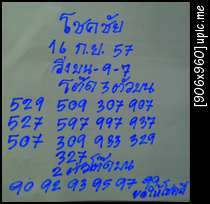 โชคชัย
16 ก.ย. 57
วิ่งบน-9-7
โต๊ด 3 ตัวบน
529 509 307 997
527 597 997 937
507 309 933 329
327
2 ตัวโต๊ดบน
90 92 93 95 97 99
ขอให้โชคดี
[906x960] upic.me